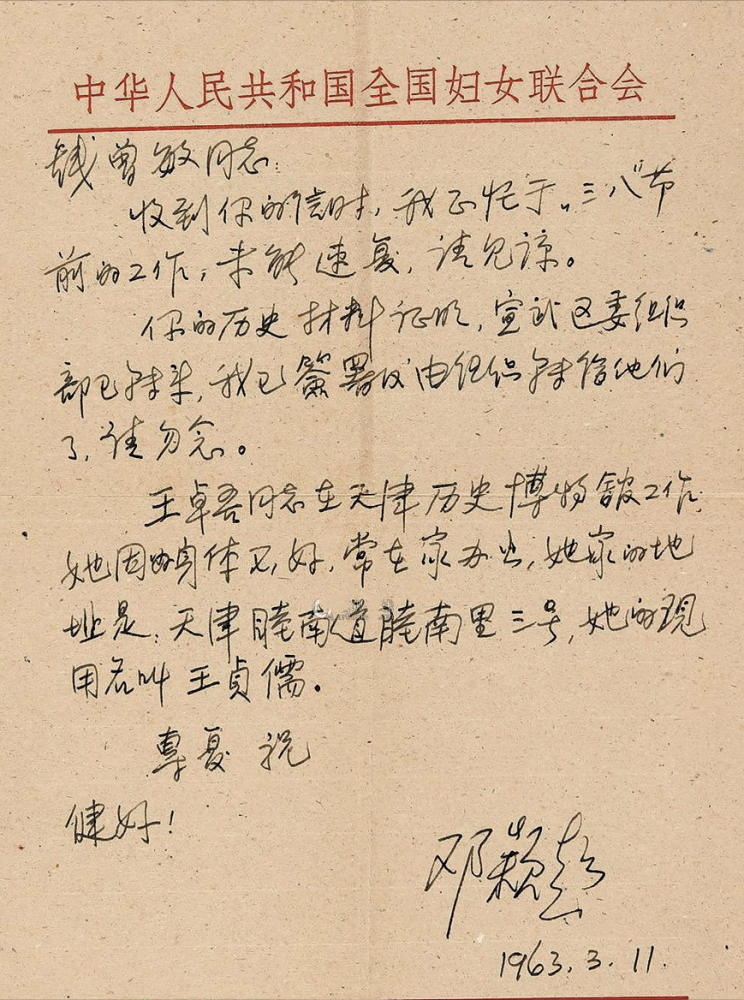 中华人民共和国全国妇女联合会
钱曾敏同志:
收到你的信时,我正忙于“三八”节
前的工作,未能速复,请见谅。
你的历史材料证明,宣武区委组织
部已转来,我已签署仪由组织转给他们
了,请勿念。
王卓吾同志在天津历史博物馆工作,
她因为身体不好,常在家办公,她家的地
址是:天津睦南道睦南里三号,她的现
用名叫王贞儒。
专复 祝
健好!
邓颖超
1963.3.11.